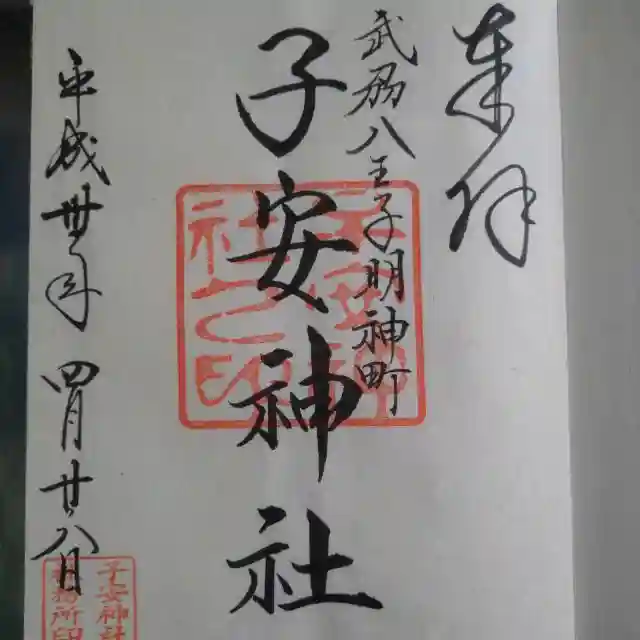 奉拝
武州八王子明神町
子安神社
平成卅年
四月廿八日
子安神社
務所印